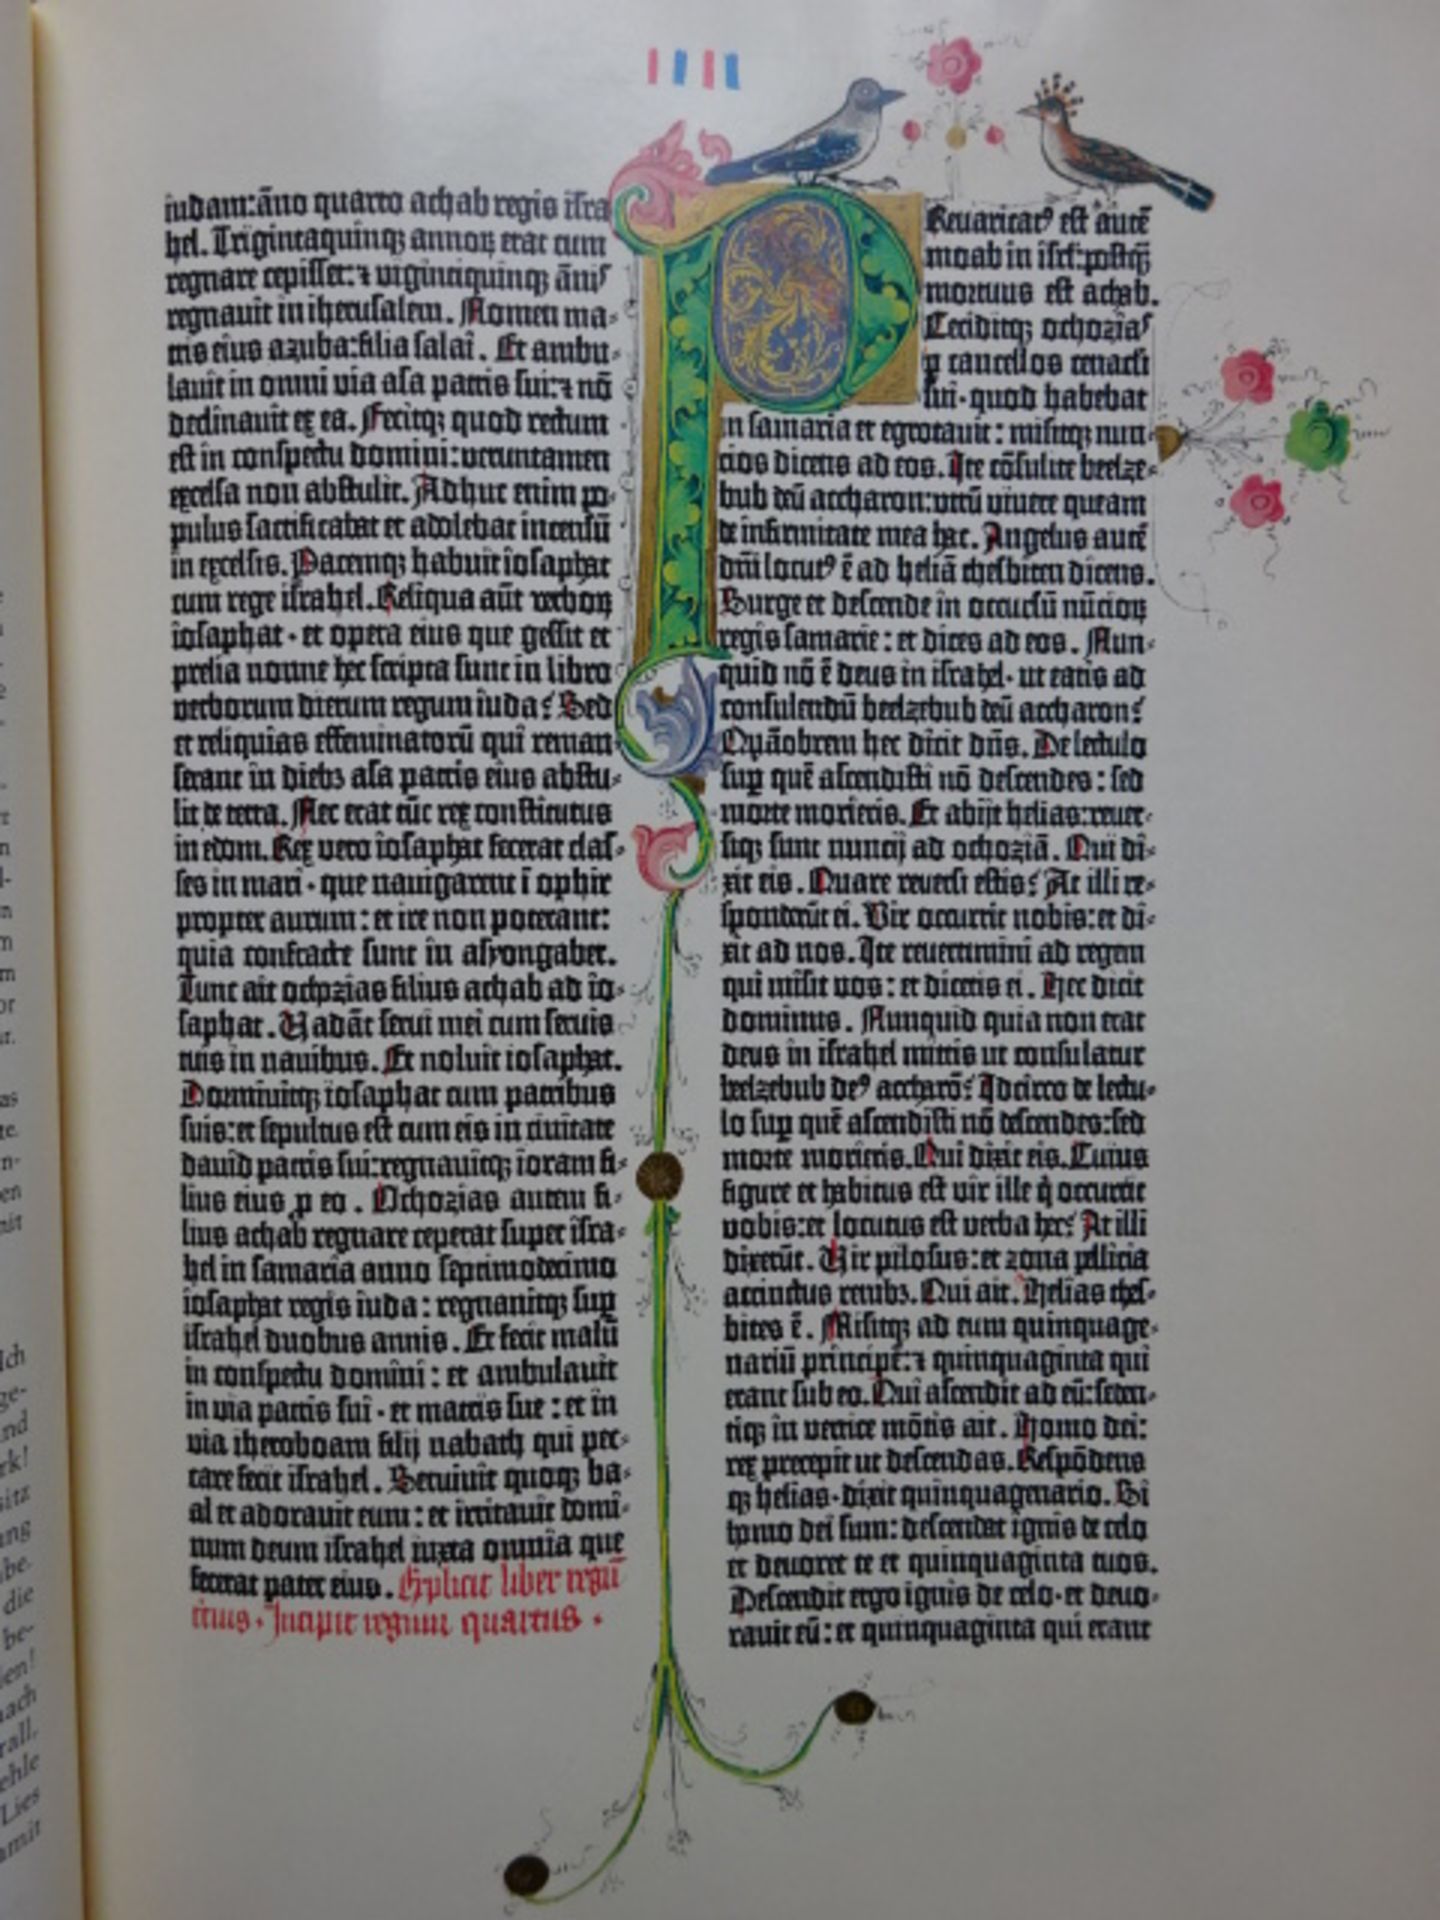 IIII
iudam: āno quarto achab regis isra
hel. Trigintaquinq; annoꝝ erat cum
regnare cepisset: ⁊ vigintiquinq; ānis
regnauit in iherusalem. Nomen ma-
tris eius azuba: filia salai. Et ambu-
lauit in omni via asa patris sui: ⁊ nō
declinauit ex ea. Fecitq; quod rectum
est in conspectu domini: veruntamen
excelsa non abstulit. Adhuc enim po-
pulus sacrificabat et adolebat incensū
in excelsis. Pacemq; habuit iosaphat
cum rege israhel. Reliqua aūt verboꝝ
iosaphat · et opera eius que gessit et
prelia nonne hec scripta sunt in libro
verborum dierum regum iuda? Sed
et reliquias effeminatorū qui reman-
serant in dieb; asa patris eius abstu-
lit de terra. Nec erat tūc rex constitutus
in edom. Rex vero iosaphat fecerat clas-
ses in mari · que nauigarent ī ophir
propter aurum: et ire non poterant:
quia confracte sunt in asyongaber.
Tunc ait ochozias filius achab ad io-
saphat. Vadāt serui mei cum seruis
tuis in nauibus. Et noluit iosaphat.
Dormiuitq; iosaphat cum patribus
suis: et sepultus est cum eis in ciuitate
dauid patris sui: regnauitq; ioram fi-
lius eius ꝓ eo. Ochozias autem fi-
lius achab regnare ceperat super isra-
hel in samaria anno septimodecimo
iosaphat regis iuda: regnauitq; suꝑ
israhel duobus annis. Et fecit malū
in conspectu domini: et ambulauit
in via patris sui · et matris sue: et in
via iheroboam filij nabath qui pec-
care fecit israhel. Seruiuit quoq; ba-
al et adorauit eum: et irritauit domi-
num deum israhel iuxta omnia que
fecerat pater eius. Explicit liber regū
tercius. Incipit regum quartus.
PReuaricatꝰ est autē
moab in isrl: postq̄
mortuus est achab.
Ceciditq; ochozias
ꝑ cancellos cenacli
sui · quod habebat
in samaria et egrotauit: misitq; nun-
cios dicens ad eos. Ite cōsulite beelze-
bub deū accharon: vtrū viuere queam
de infirmitate mea hac. Angelus autē
dn̄i locutꝰ ē ad heliā thesbiten dicens.
Surge et descende in occursū nūcioꝝ
regis samarie: et dices ad eos. Nun-
quid nō ē deus in israhel · ut eatis ad
consulendū beelzebub deū accharon?
Quāobrem hec dicit dn̄s. De lectulo
suꝑ quē ascendisti nō descendes: sed
morte morieris. Et abijt helias: reuer-
siq; sunt nuncij ad ochoziā. Qui di-
xit eis. Quare reuersi estis? At illi re-
sponderūt ei. Vir occurrit nobis: et di-
xit ad nos. Ite reuertimini ad regem
qui misit vos: et dicetis ei. Hec dicit
dominus. Nunquid quia non erat
deus in israhel mittis ut consulatur
beelzebub deꝰ accharō? Idcirco de lectu-
lo suꝑ quē ascendisti nō descendes: sed
morte morieris. Qui dixit eis. Cuius
figure et habitus est vir ille q̇ occurrit
vobis: et locutus est verba hec? At illi
dixerūt. Vir pilosus: et zona pellicia
accinctus renib;. Qui ait. Helias thes-
bites ē. Misitq; ad eum quinquage-
nariū principē: ⁊ quinquaginta qui
erant sub eo. Qui ascendit ad eū: seden-
tiq; in vertice mōtis ait. Homo dei:
rex precepit ut descendas. Respōdens
q; helias · dixit quinquagenario. Si
homo dei sum: descendat ignis de celo
et deuoret te et quinquaginta tuos.
Descendit ergo ignis de celo · et deuo-
rauit eū: et quinquaginta qui erant